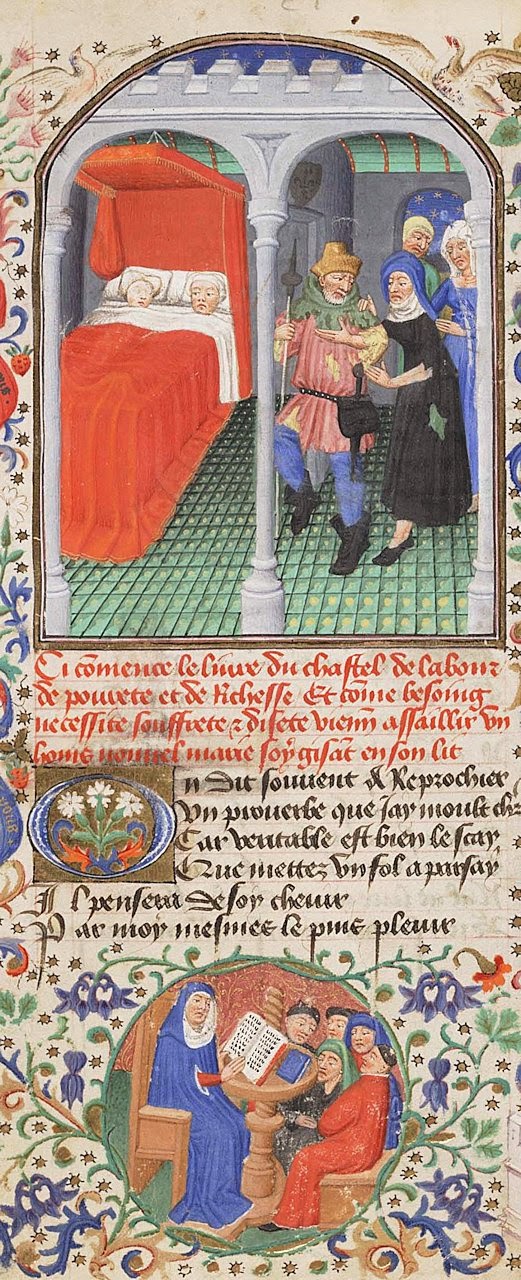 Ci cõmence le liure du chastel de labour
de pourete et de Richesse Et cõme besoing
necessite souffrete & disete vienñt assaillir vn
home nouuel marie soy gisãt en son lit
On dit souuent & Reprochier
Vn prouerbe que Jay moult chi
Car veritable est bien le scay
Que mettez vn fol a par say
Il pensera de soy cheuir
Par moy mesmes le puis pleuir